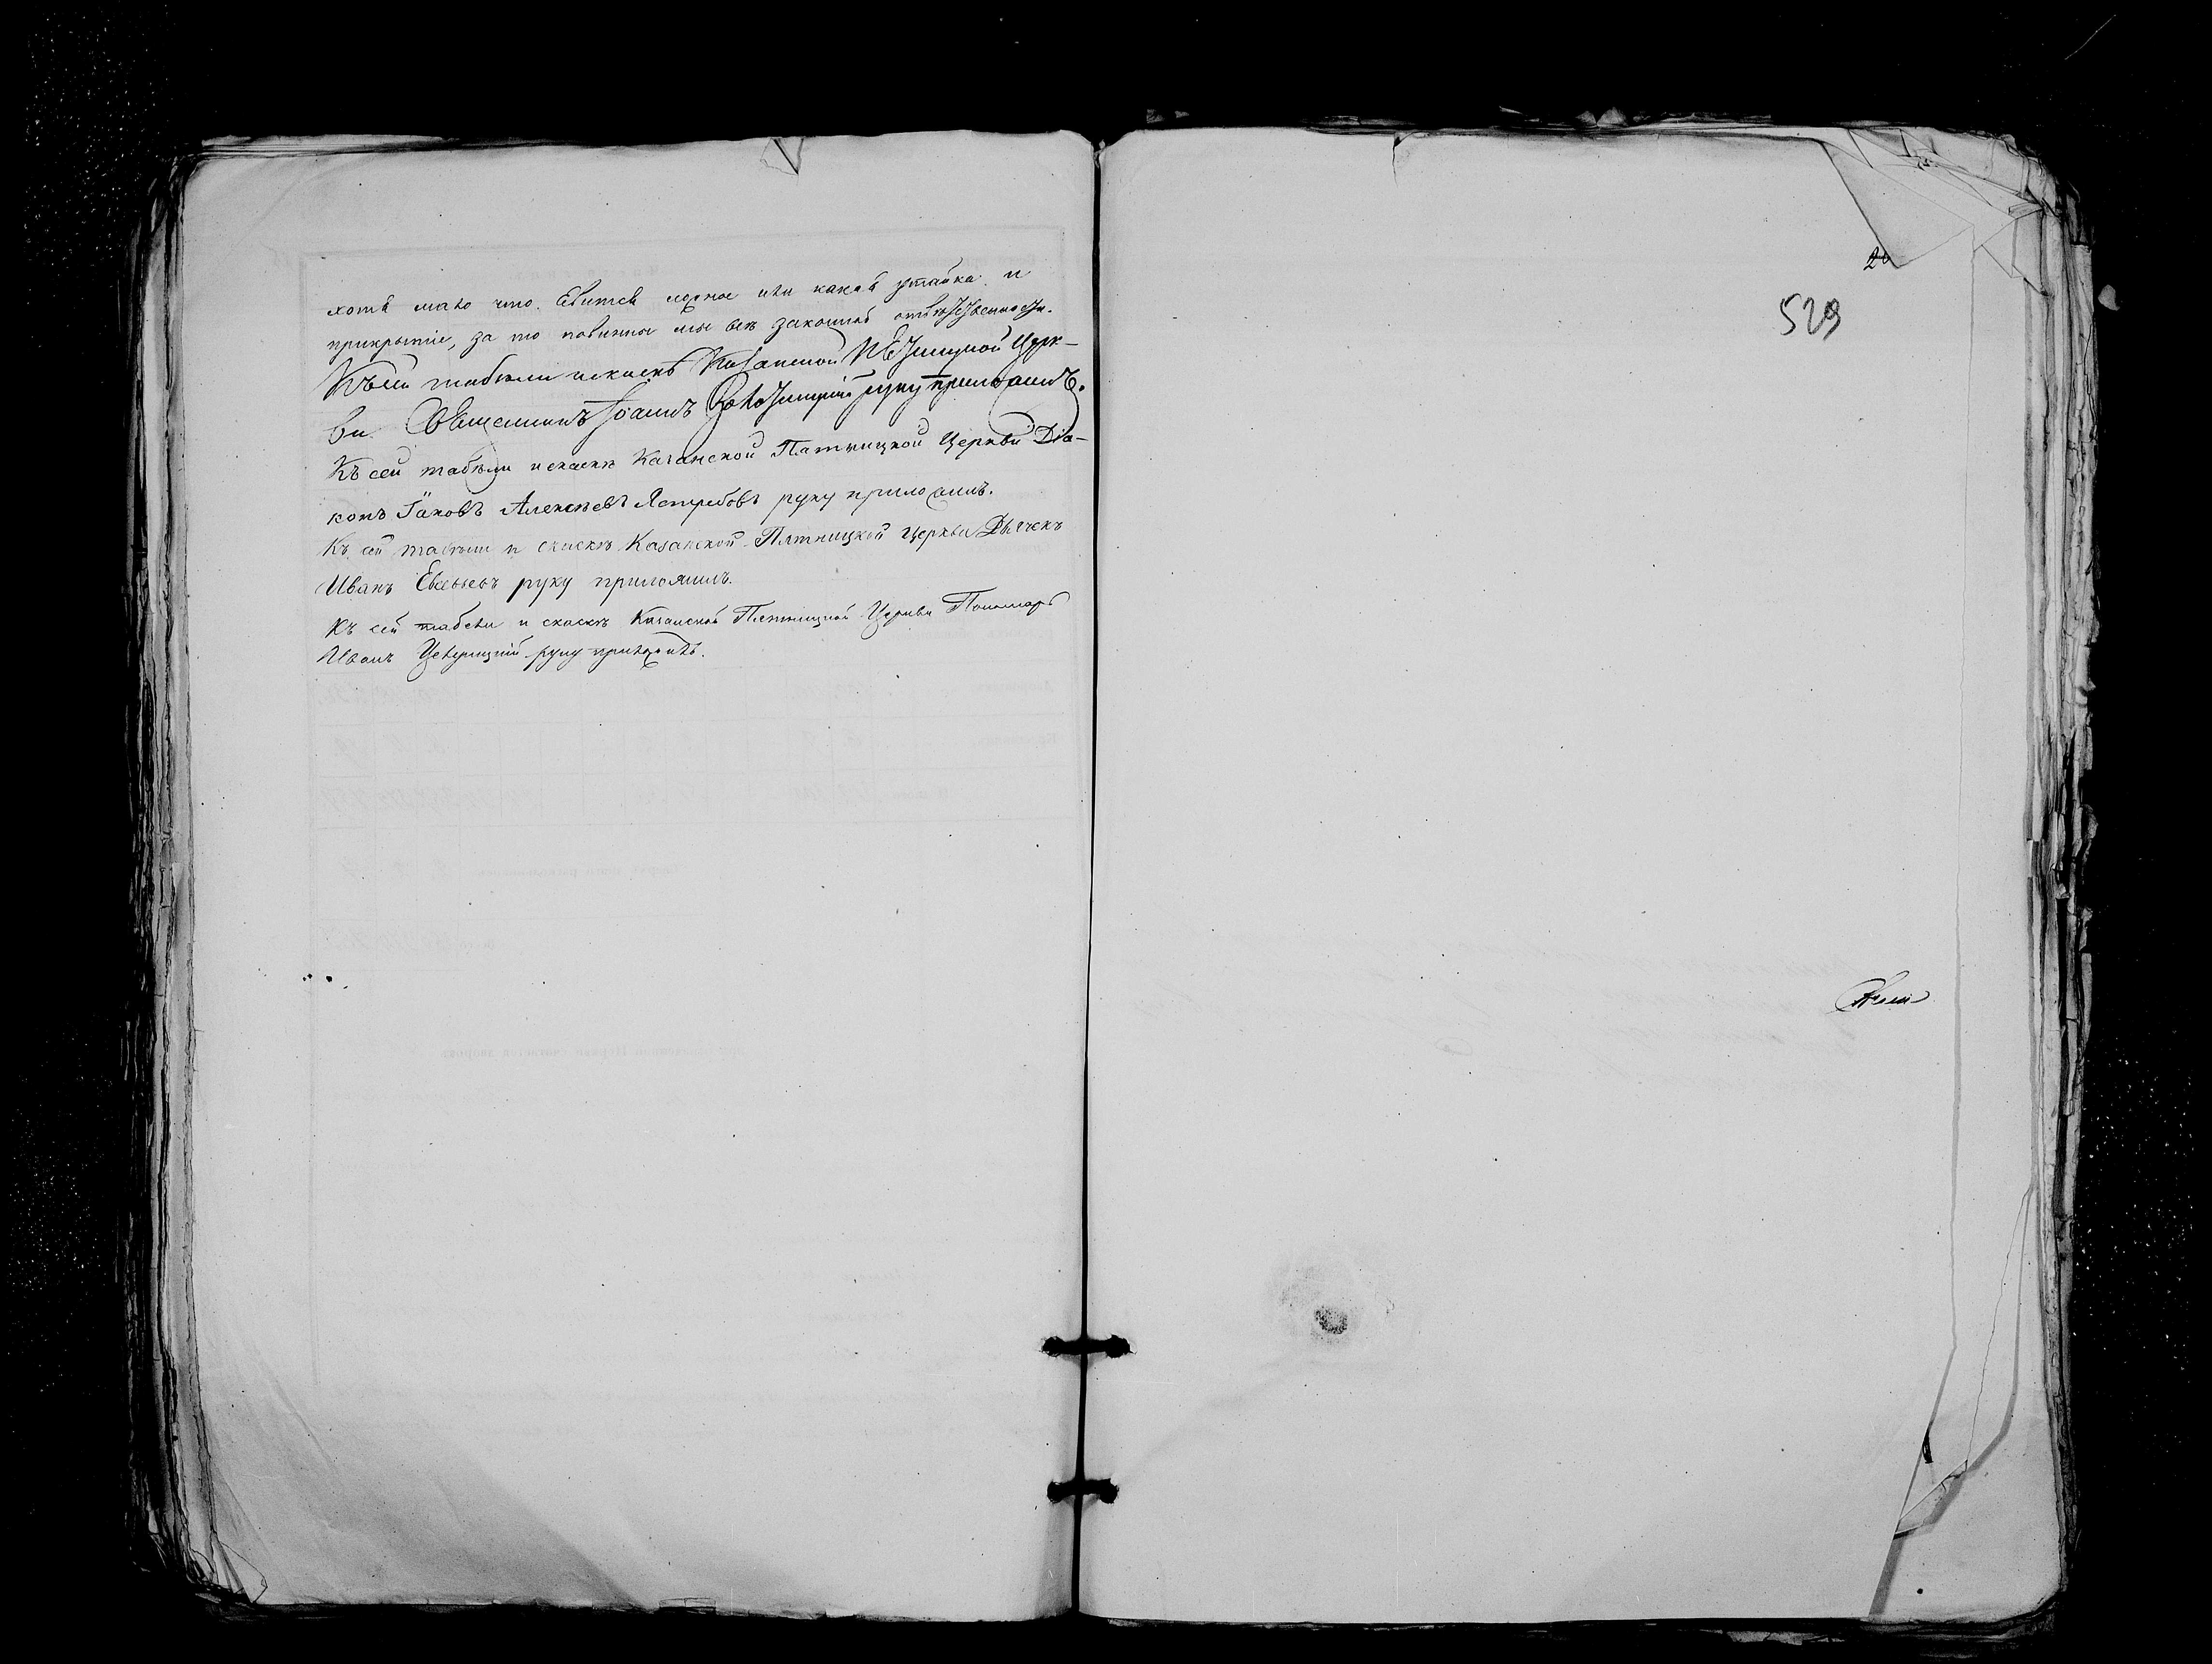 хотя мало что явится ложное или какая утайка и
прикрытіе, за то повинны мы всѣ законной отвѣтственности.
Къ сей табѣли и скаскѣ Казанской Пятницкой Церк-
ви Священникъ Іоаннъ руку приложилъ.
Къ сей табѣли и скаскѣ Казанской Пятницкой Церкви Діа-
конъ Іаковъ Алексѣевъ Ястребовъ руку приложилъ.
Къ сей табѣли и скаскѣ Казанской Пятницкой Церкви Дьячекъ
Иванъ Евсевьевъ руку приложилъ.
Къ сей табели и скаскѣ Казанской Пятницкой Церкви Пономарь
Иванъ руку приложилъ.
529